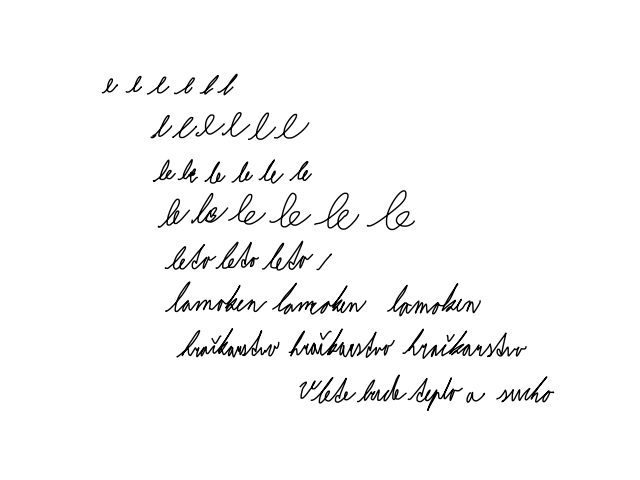 e e e e e e
l l l l l l
le le le le le le
le le le le le le
leto leto leto /
lamoken lamoken lamoken
hračkarstvo hračkarstvo hračkarstvo
V lete bude teplo a sucho